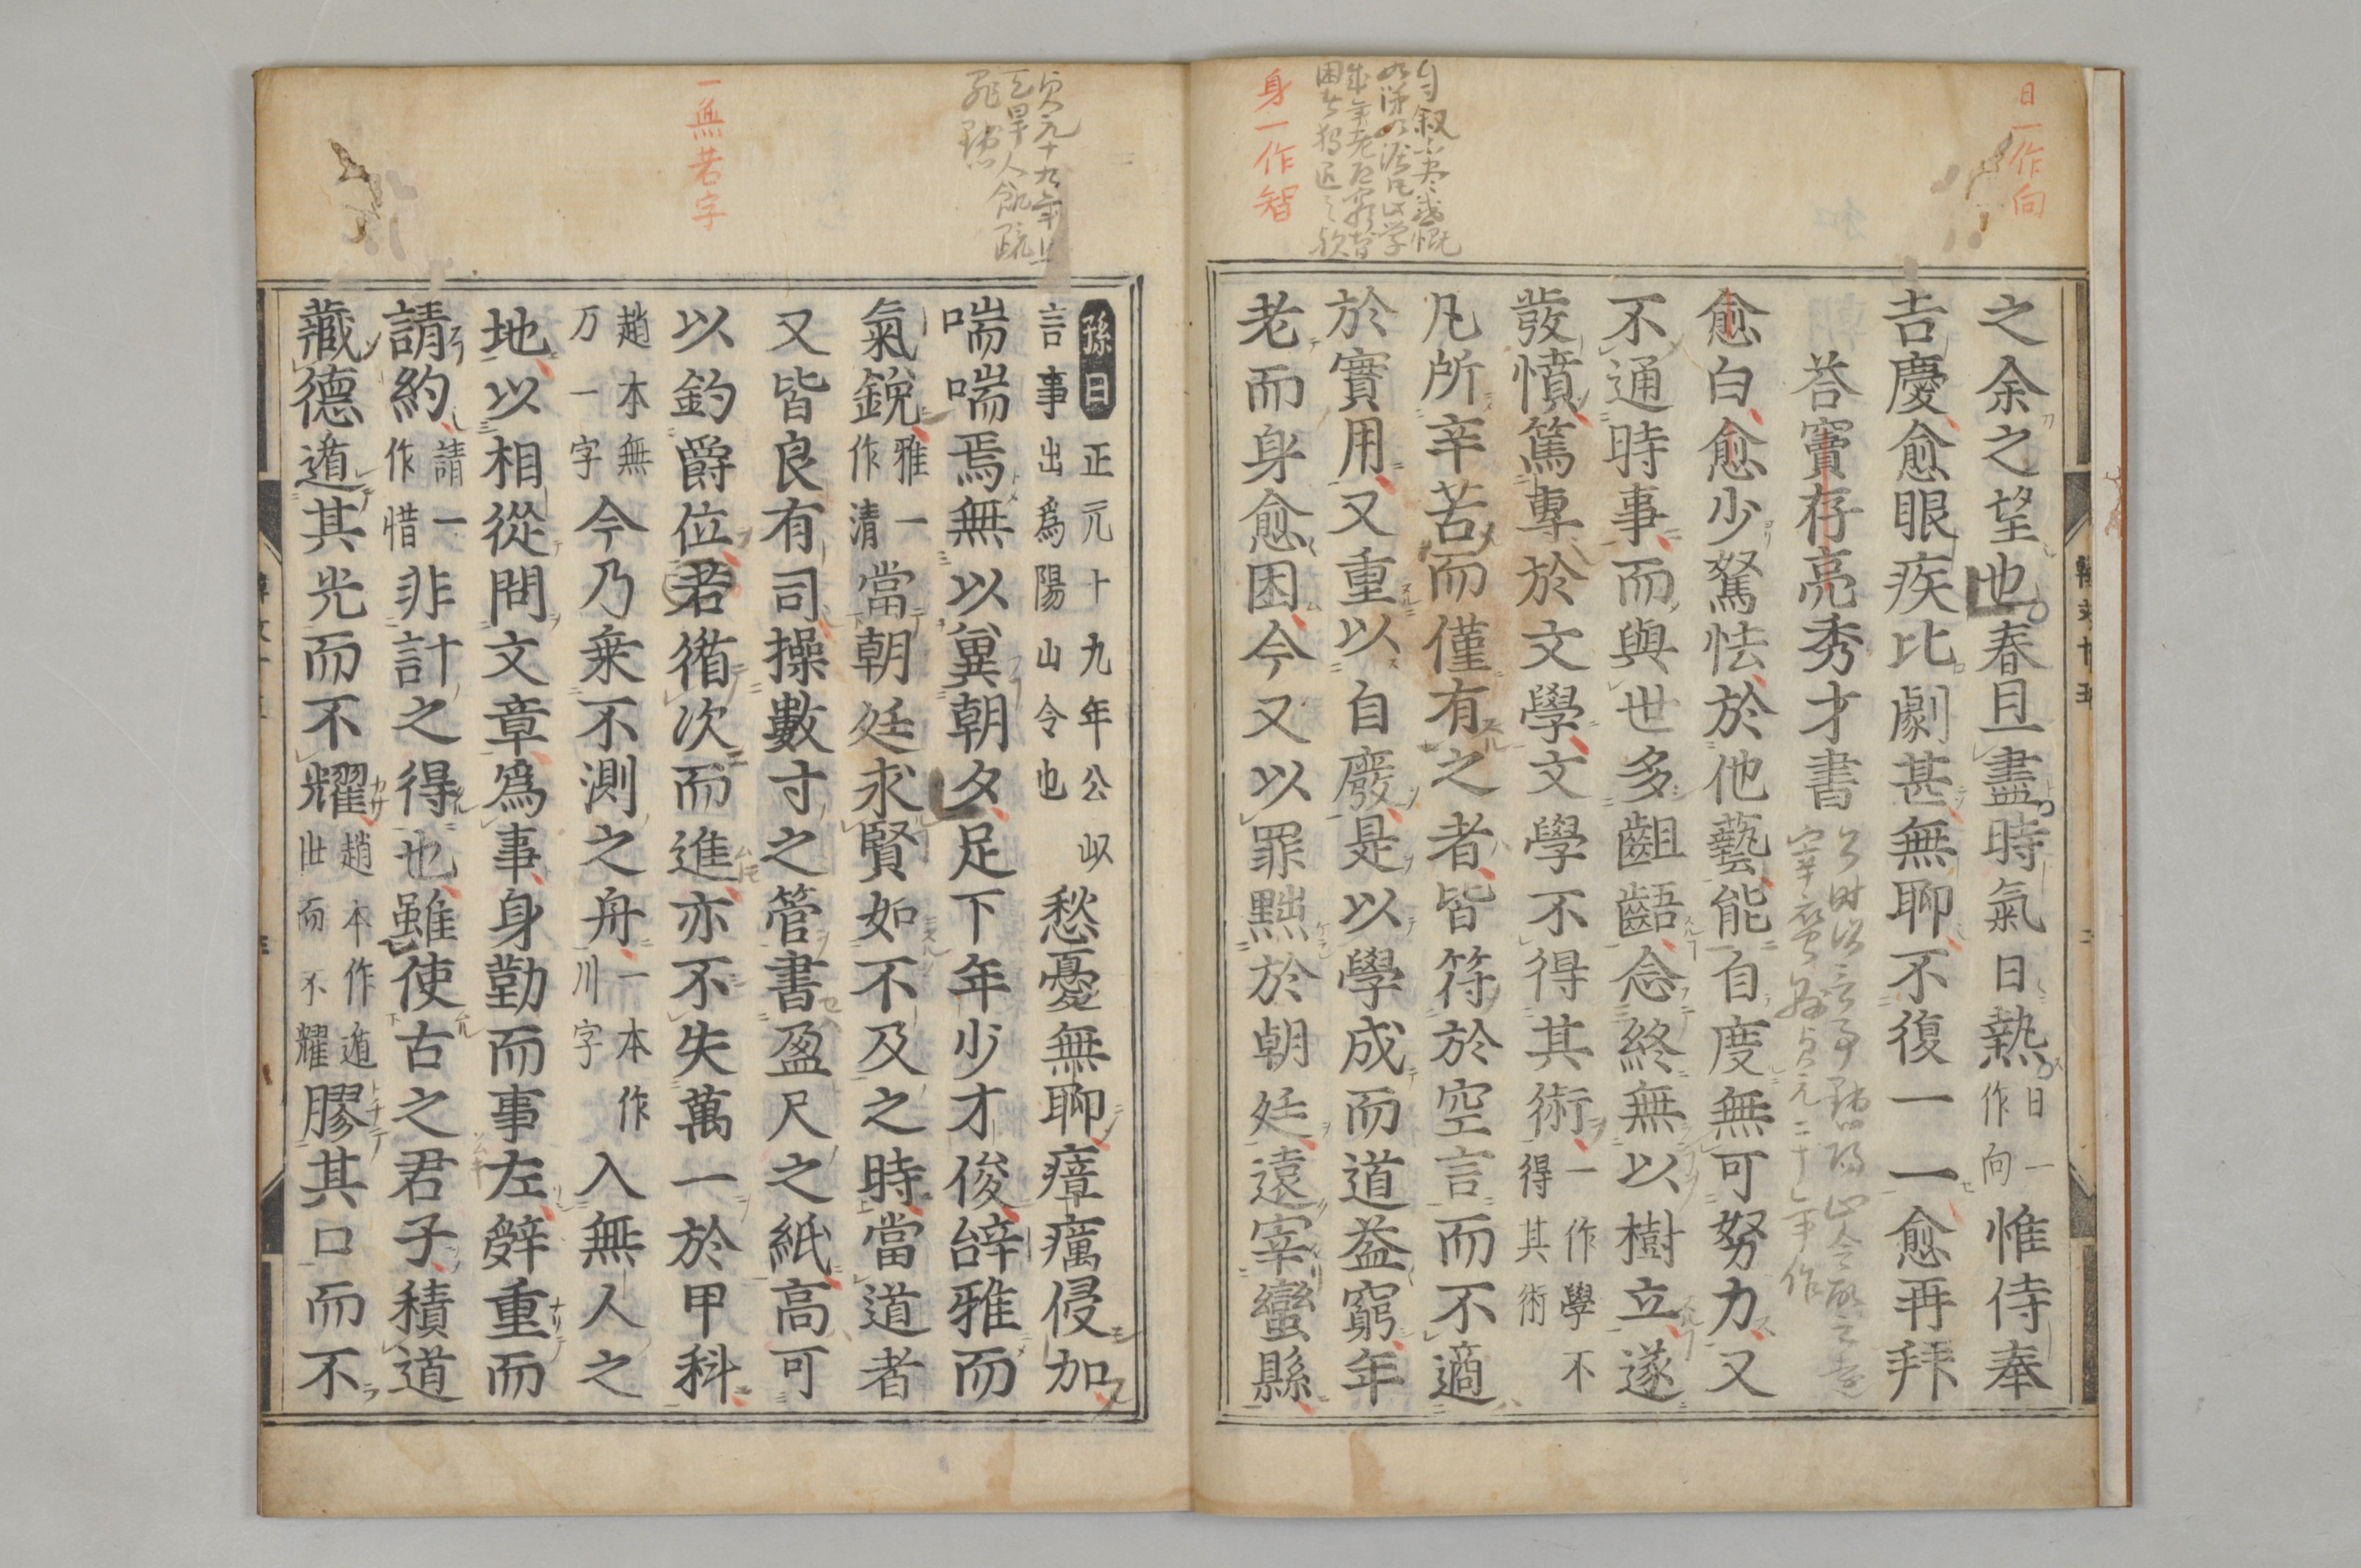 日一作向
身一作智
之余之望也春且盡時氣日熱日一作向惟侍奉
吉慶愈眼疾比劇甚無聊不復一一愈再拜
荅竇存亮秀才書
愈白愈少駑怯於他藝能自度無可努力又
不通時事而與世多齟齬念終無以樹立遂
發憤篤專於文學文學不得其術一作學不得其術
凡所辛苦而僅有之者皆符於空言而不適
於實用又重以自廢是以學成而道益窮年
老而身愈困今又以罪黜於朝廷遠宰蠻縣
一無若字
孫曰正元十九年公以言事出爲陽山令也愁憂無聊瘴癘侵加
喘喘焉無以冀朝夕足下年少才俊辭雅而
氣銳雅一作清當朝廷求賢如不及之時當道者
又皆良有司操數寸之管書盈尺之紙高可
以釣爵位若循次而進亦不失萬一於甲科
趙本無万一字今乃乗不測之舟一本作川字入無人之
地以相從問文章爲事身勤而事左辭重而
請約請一作惜非計之得也雖使古之君子積道
藏德遁其光而不耀趙本作遁世而不耀膠其口而不